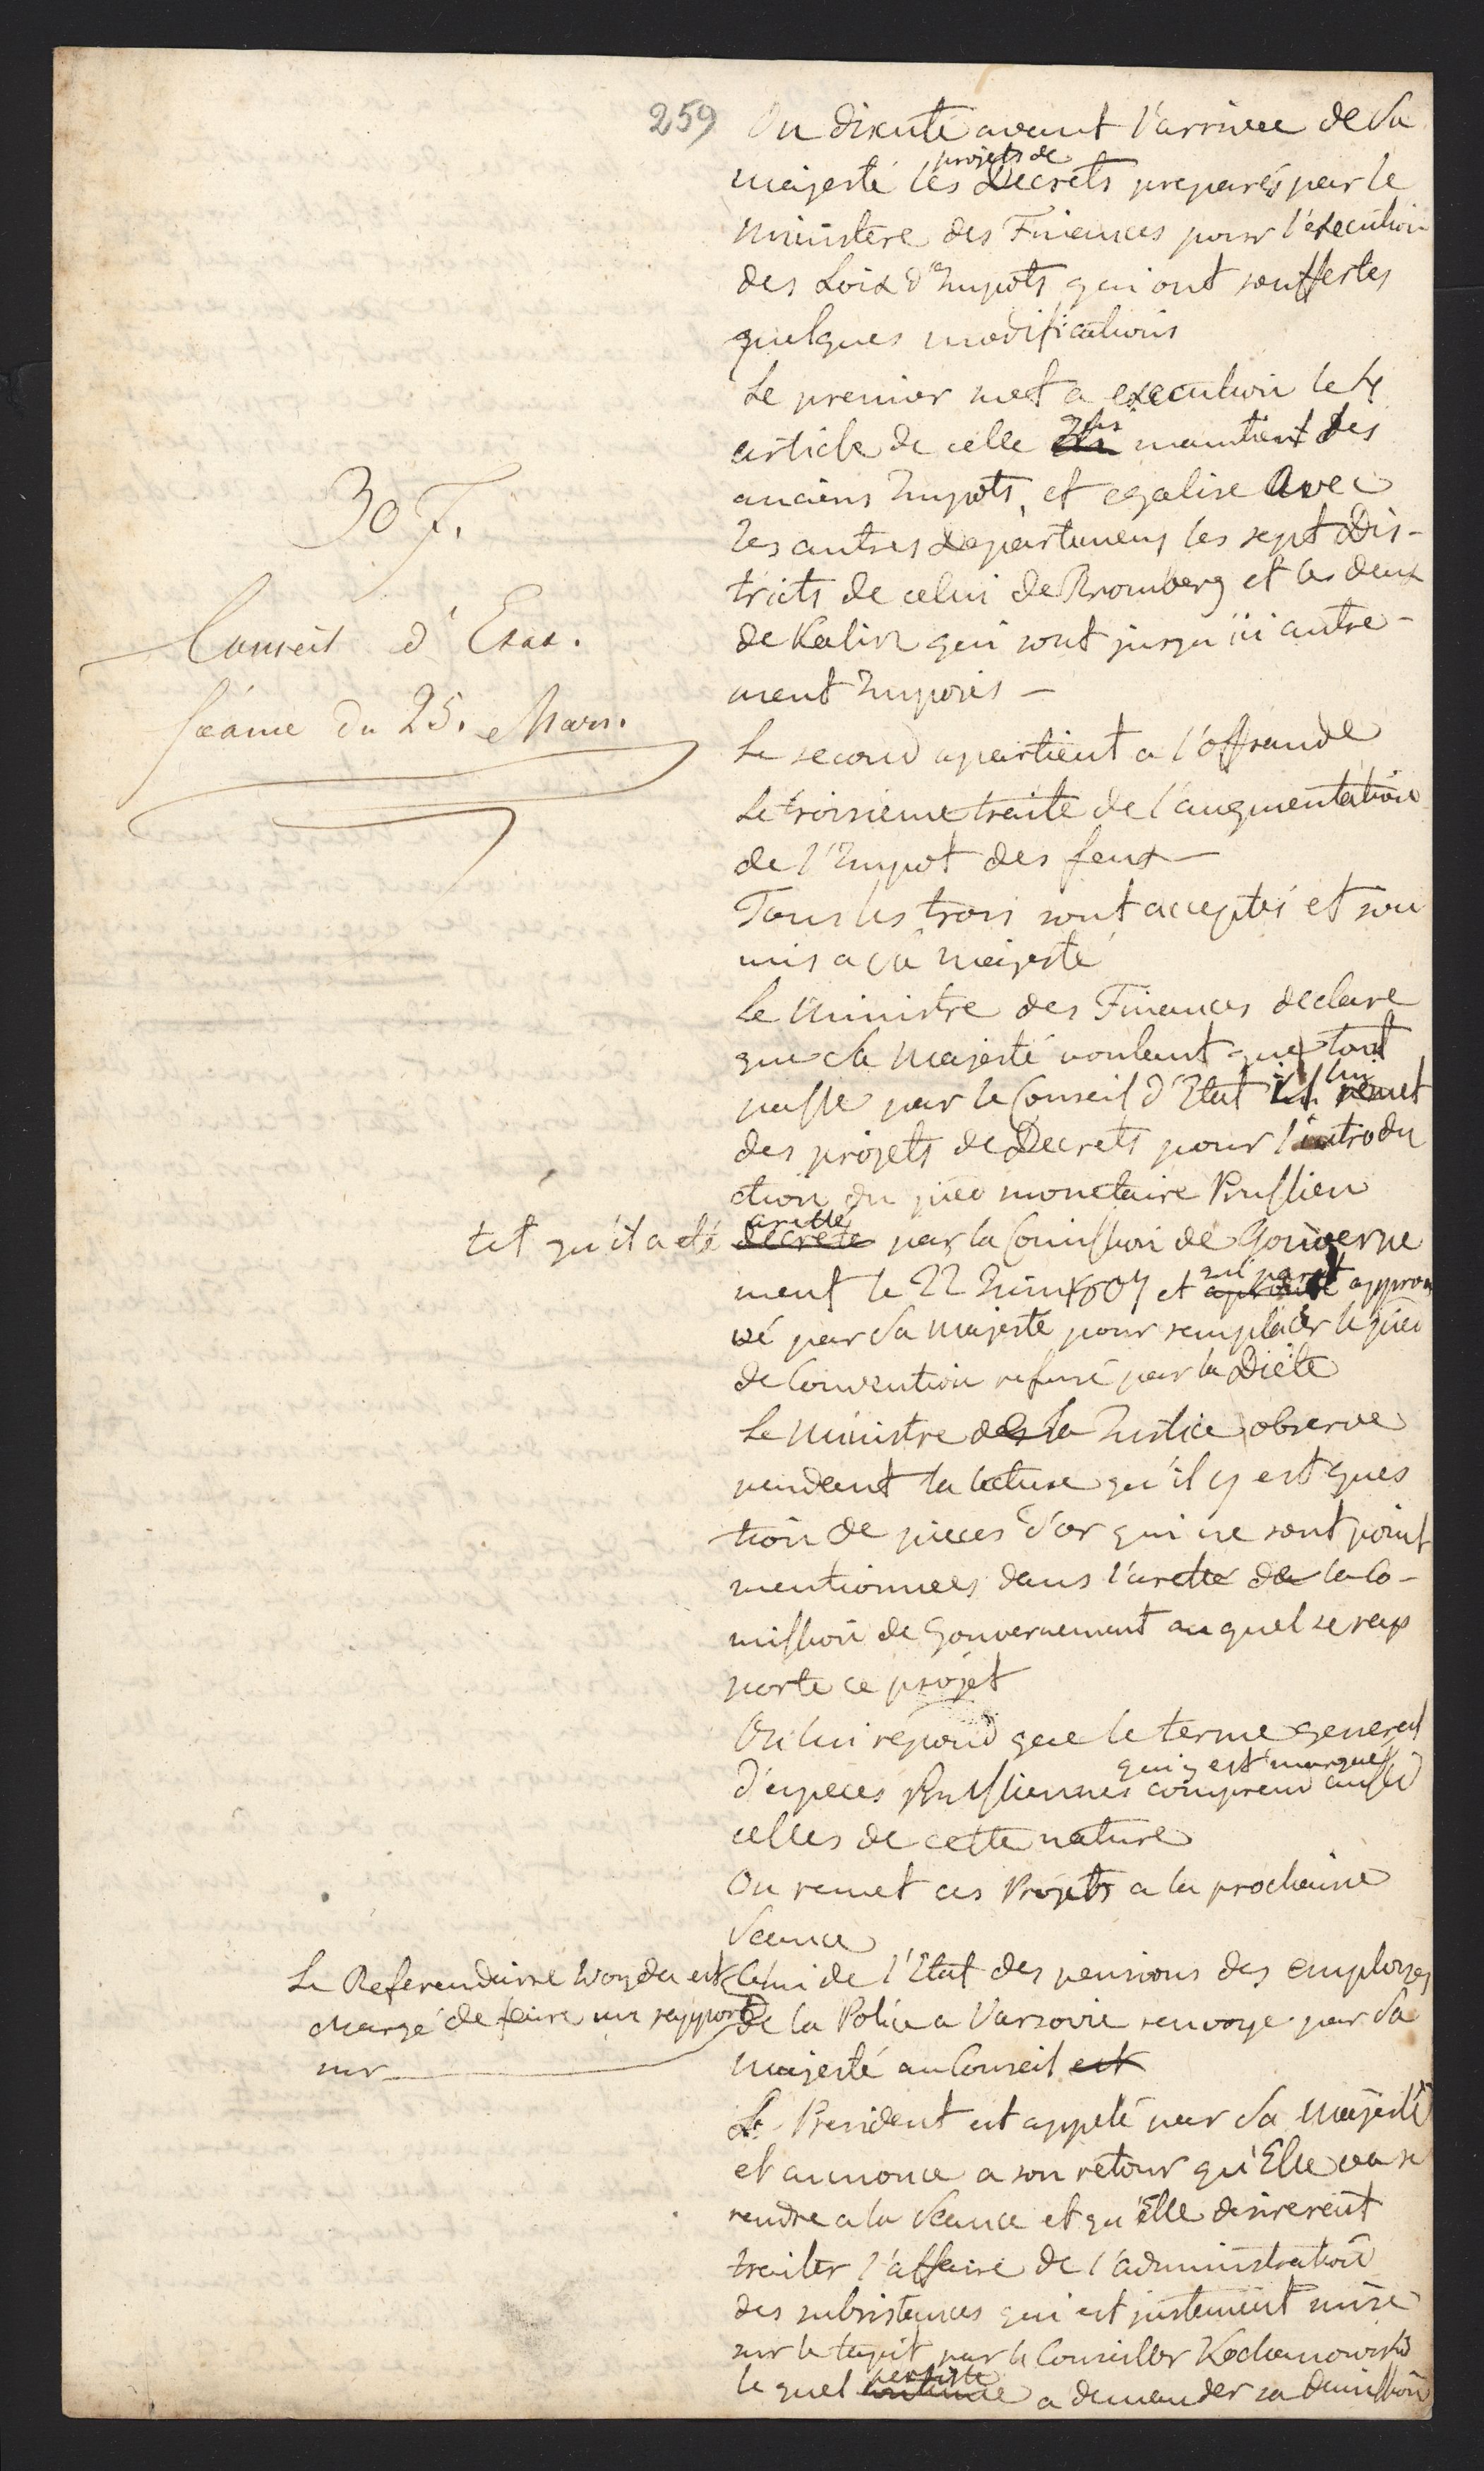 259
30 J.
Conseil d'Etat.
Séance du 25. Mars.
On discute avant l'arrivee de Sa
projets de
majesté les Decrets preparés par le
Ministere des Finances pour l'execution
des Loix d'Impots qui ont souffertes
quelques modifications
Le premier met a execution le 4
article de celle maintient des
anciens Impots, et egalise avec
les autres Departemens les sept Dis-
tricts de celui de Bromberg et les deux
de Kalisz qui sont jusqu'ici autre-
ment Imposés —
Le second apartient a l'offrande
Le troisieme traite de l'augmentation
de l'Impot des feux —
Tous les trois sont acceptés et sou
mis a Sa Majesté
Le Ministre des Finances declare
que Sa Majesté voulant que tout
passe par le Conseil d'Etat il lui remet
des projets de Decrets pour l'introdu
ction du pied monetaire Prussien
tel qu'il a été decreté arretté par la Comission de Gouverne
ment le 22 Juin 1807 et qui parut approu
vé par Sa Majesté pour remplacer le pied
de Convention refusé par la Diète
Le Ministre de la Justice observe
pendant la lecture qu'il y est ques
tion de pieces d'or qui ne sont point
mentionnees dans l'aretté de la Co-
mission de Gouvernement au quel se rap
porte ce projet
On lui repond que le terme general
qui y est marqué
d'especes Prussiennes comprend aussi
celles de cette nature
On remet ces Projets a la prochaine
Seance
Le Referendaire Woyda est
chargé de faire un rapport
sur
Celui de l'Etat des pensions des employes
de la Police a Varsovie renvoyé par Sa
Majesté au Conseil est
Le President est appelé par Sa Majesté
et annonce a son retour qu'Elle va se
rendre a la Seance et qu'Elle desirereit
traiter l'affaire de l'administration
des subsistances qui est justement mise
sur le tapit par le Conseiller Kochanowski
le quel continue persiste a demander sa Demission